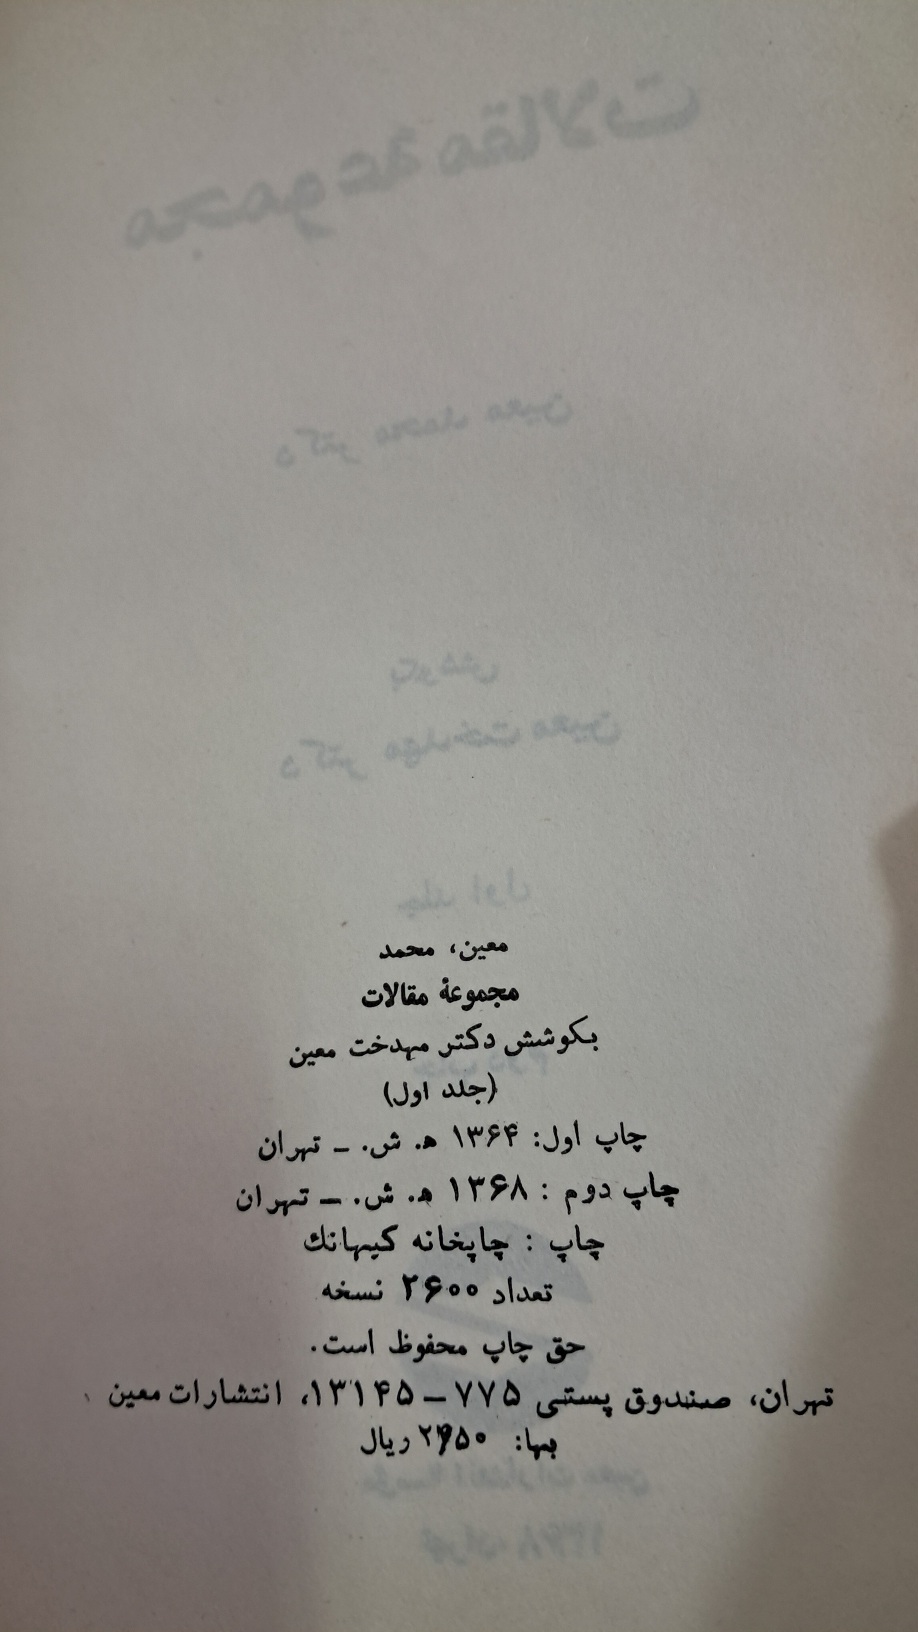 معین، محمد
مجموعهٔ مقالات
بکوشش دکتر مهدخت معین
(جلد اول)
چاپ اول: ۱۳۶۴ ه‍. ش. ـ تهران
چاپ دوم : ۱۳۶۸ ه‍. ش. ـ تهران
چاپ : چاپخانه کیهانك
تعداد ۲۶۰۰ نسخه
حق چاپ محفوظ است.
تهران، صندوق پستی ۷۷۵ – ۱۳۱۴۵، انتشارات معین
بها: ریال